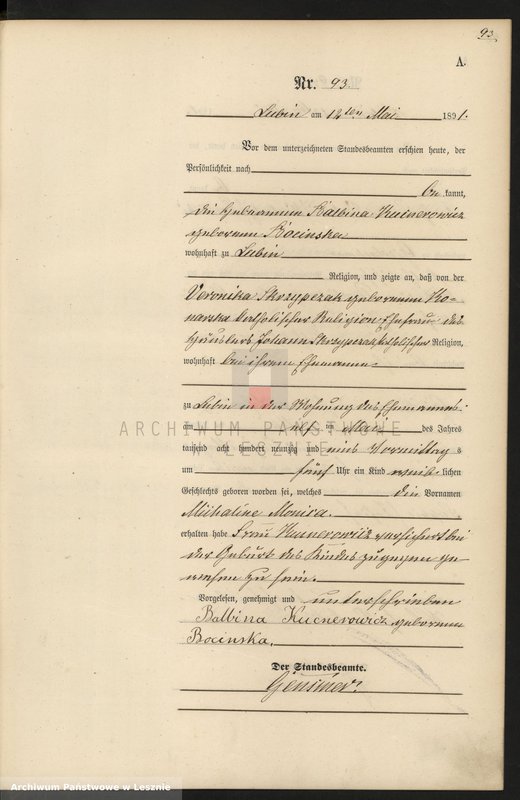 93.
A.
Nr. 93.
Lubin am 12ten Mai 1891.
Vor dem unterzeichneten Standesbeamten erschien heute, der
Persönlichkeit nach
be kannt,
die Hebamme Balbina Kucnerowicz
geborene Bocinska
wohnhaft zu Lubin
Religion, und zeigte an, daß von der
Veronika Skrzypczak geborenen Ko-
narska katholischer Religion Ehefrau des
Häuslers Johann Skrzypczak katholischer Religion,
wohnhaft bei ihrem Ehemanne.
zu Lubin in der Wohnung des Ehemannes
am elften Mai des Jahres
tausend acht hundert neunzig und eins Vormittag s
um fünf Uhr ein Kind weib lichen
Geschlechts geboren worden sei, welches die Vornamen
Michaline Monica.
erhalten habe Frau Kucnerowicz versichert bei
der Geburt des Kindes zugegen ge
wesen zu sein.
Vorgelesen, genehmigt und unterschrieben
Balbina Kucnerowicz geborene
Bocinska.
Der Standesbeamte.
ARCHIWUM PAŃSTWOWE
W LESZNIE
Archiwum Państwowe w Lesznie